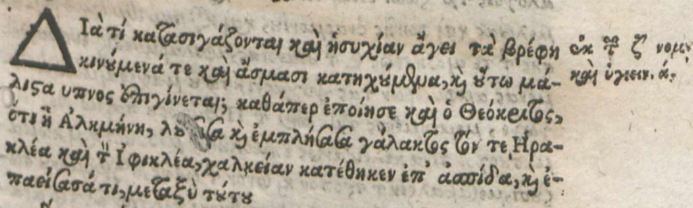 Διὰ τί κατασιγάζονται καὶ ἡσυχίαν ἄγει τὰ βρέφη
κινούμενά τε καὶ ἄσμασι κατηχούμενα, καὶ οὕτω μά-
λιστα υπνος ἐπιγίνεται; καθάπερ ἐποίησε καὶ ὁ Θεόκριτος,
ὅτι ἡ Αλκμήνη, λούσασα καὶ ἐμπλήσασα γάλακτος τόν τε Ηρα-
κλέα καὶ τὸν Ιφικλέα, χαλκείαν κατέθηκεν ἐπ' ἀσπίδα, καὶ ἐ-
παείσασά τι, μεταξὺ τούτου
ἐκ τῶν ζ νομ.
καὶ ὑγιειν. ά.